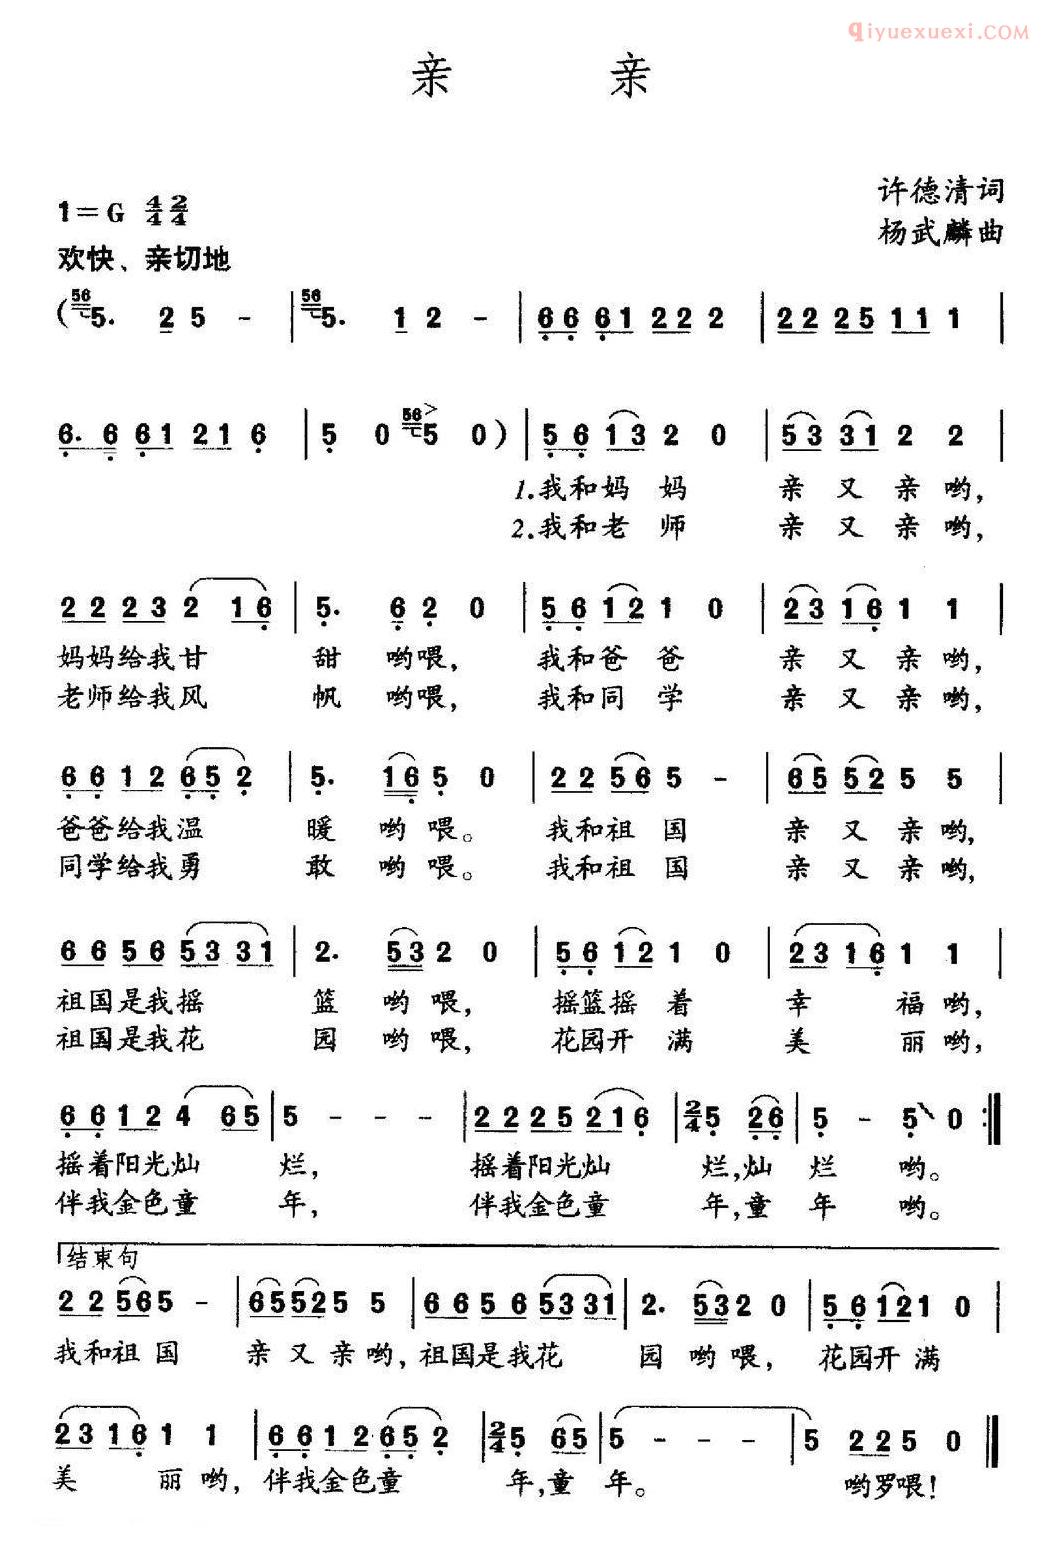 qiyuexuexi.COM
亲 亲
许德清词
1=G 4/4 2/4
杨武麟曲
欢快、亲切地
(56 5. 2 5 - | 56 5. 1 2 - | 6 6 6 1 2 2 2 | 2 2 2 5 1 1 1 |
6. 6 6 1 2 1 6 | 5 0 56 5 0 ) | 5 6 1 3 2 0 | 5 3 3 1 2 2 |
1.我和妈 妈 亲 又 亲 哟,
2.我和老 师 亲 又 亲 哟,
2 2 2 3 2 1 6 | 5. 6 2 0 | 5 6 1 2 1 0 | 2 3 1 6 1 1 |
妈妈给我甘 甜 哟喂, 我和爸 爸 亲 又 亲 哟,
老师给我风 帆 哟喂, 我和同 学 亲 又 亲 哟,
6 6 1 2 6 5 2 | 5. 1 6 5 0 | 2 2 5 6 5 - | 6 5 5 2 5 5 |
爸爸给我温 暖 哟 喂。 我和祖 国 亲 又 亲 哟,
同学给我勇 敢 哟 喂。 我和祖 国 亲 又 亲 哟,
6 6 5 6 5 3 3 1 | 2. 5 3 2 0 | 5 6 1 2 1 0 | 2 3 1 6 1 1 |
祖国是我摇 篮 哟 喂, 摇篮摇 着 幸 福 哟,
祖国是我花 园 哟 喂, 花园开 满 美 丽 哟,
6 6 1 2 4 6 5 | 5 - - - | 2 2 2 5 2 1 6 | 2/4 5 2 6 | 5 - 5 0 :|
摇着阳光灿 烂, 摇着阳光灿 烂,灿 烂 哟。
伴我金色童 年, 伴我金色童 年,童 年 哟。
结束句
2 2 5 6 5 - | 6 5 5 2 5 5 | 6 6 5 6 5 3 3 1 | 2. 5 3 2 0 | 5 6 1 2 1 0 |
我和祖 国 亲 又 亲 哟, 祖国是我花 园 哟 喂, 花园开 满
2 3 1 6 1 1 | 6 6 1 2 6 5 2 | 2/4 5 6 5 | 5 - - - | 5 2 2 5 0 ‖
美 丽 哟, 伴我金色童 年,童 年。 哟罗喂!